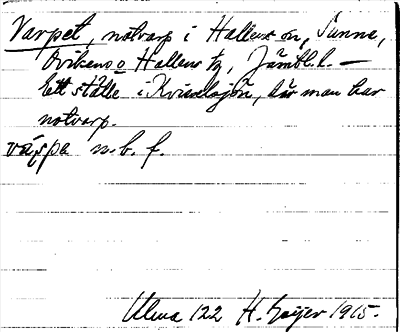 Varpet, notvarp i Hallens sn, Sunne,
Ovikens o Hallens tg, Jämtl. l. —
Ett ställe i Kvisslesjön, där man har
notvarp.
värpa n. b. f.
Ulma 122 H. Geijer 1915.